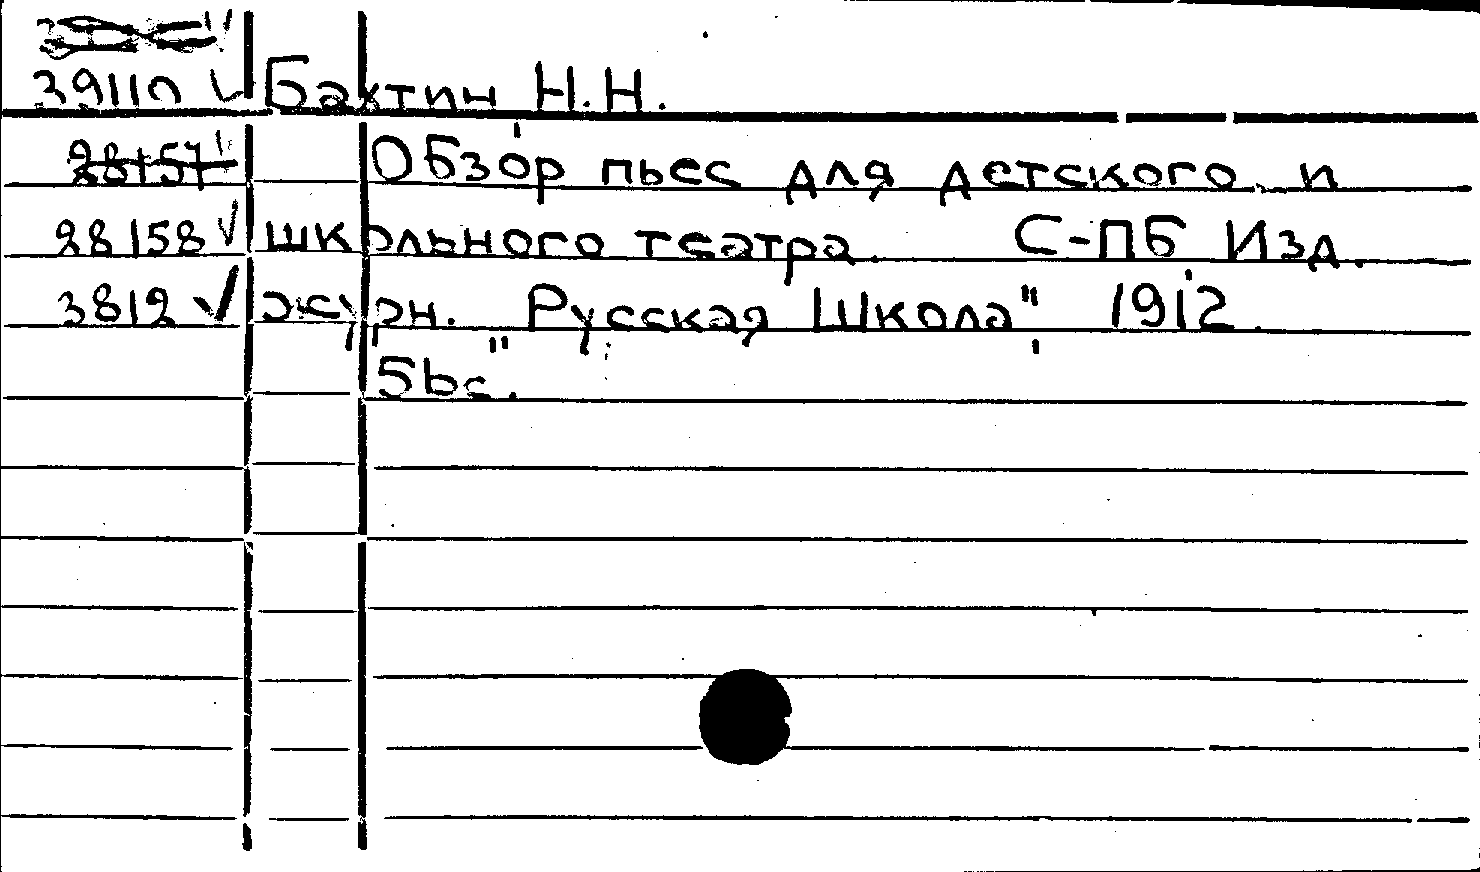 39110 ✓ Бахтин Н.Н.
28157 ✓ Обзор пьес для детского и
28158 ✓ школьного театра. С-ПБ Изд.
3812 ✓ журн. "Русская Школа" 1912.
5bc.